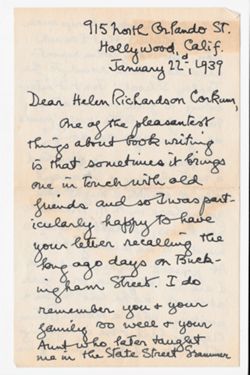 915 North Orlando St.
Hollywood, Calif.
January 22d, 1939
Dear Helen Richardson Corkum,
One of the pleasantest
things about book writing
is that sometimes it brings
one in touch with old
friends and so I was part-
icularly happy to have
your letter recalling the
long ago days on Buck-
ingham Street. I do
remember you & your
family so well & your
Aunt who later taught
me in the State Street Grammer